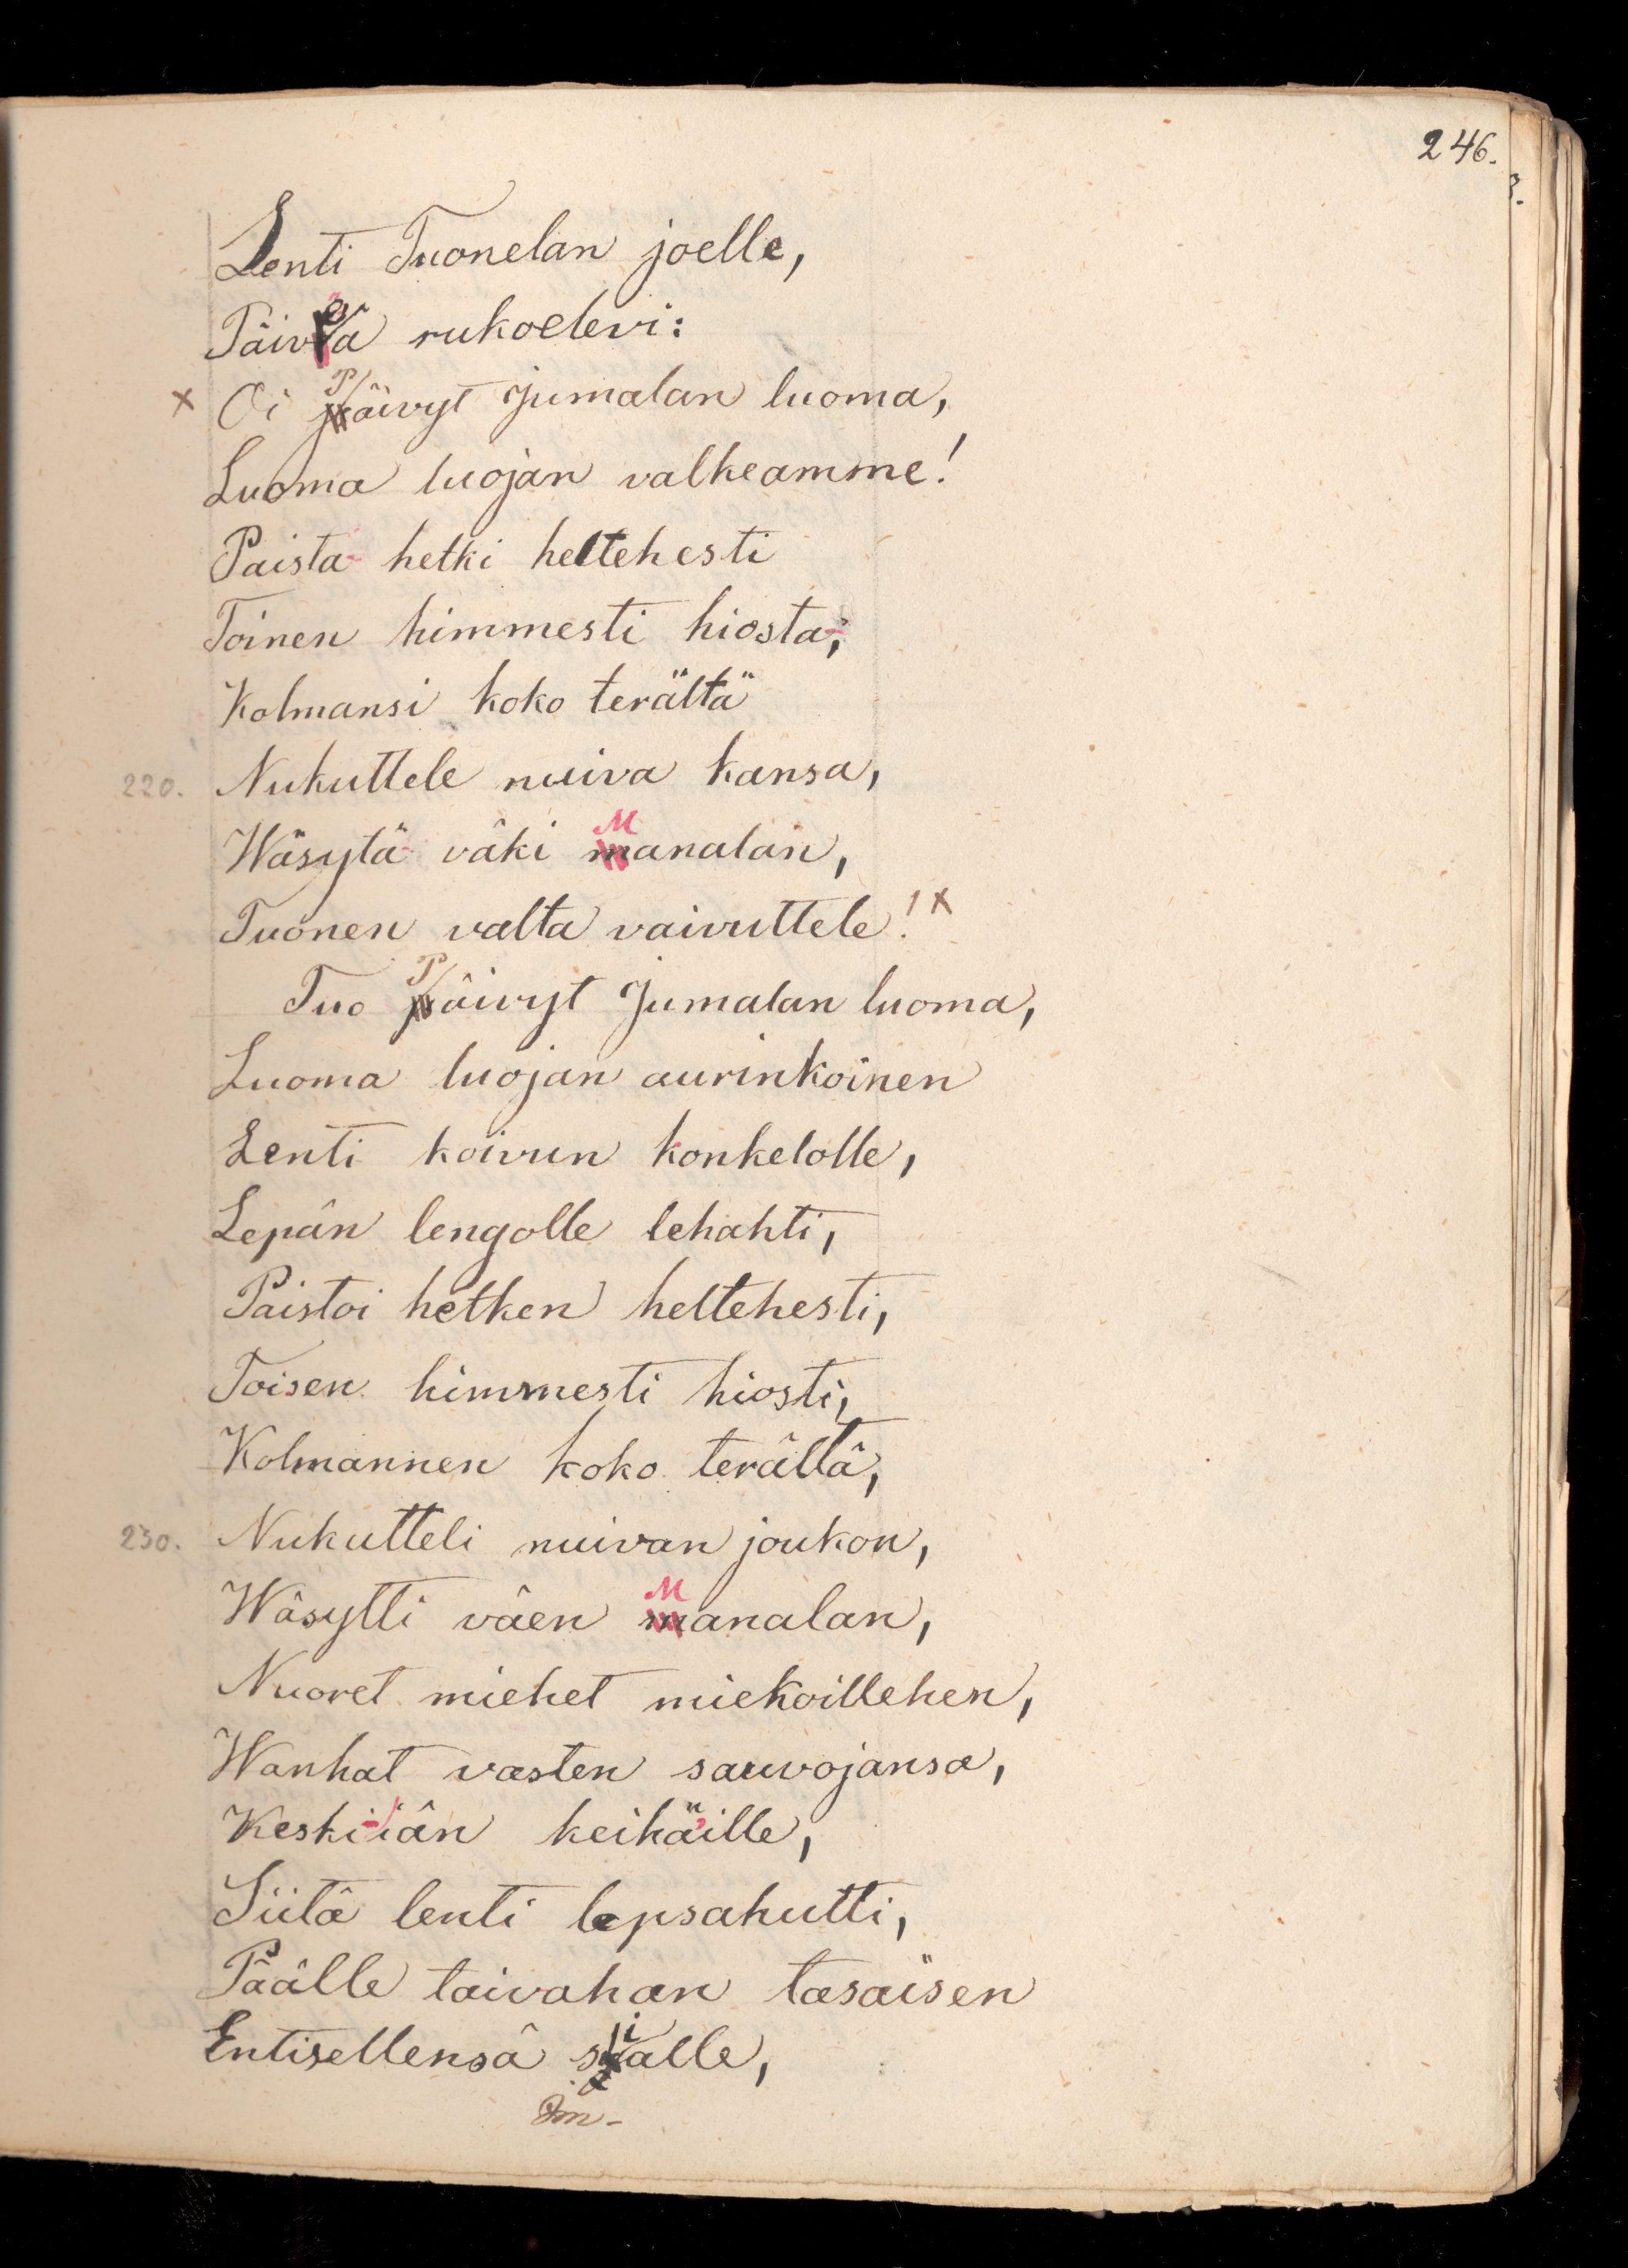 246.
3.
Lenti Tuonelan joelle,
Päiveä rukoelevi:
x Oi Päivyt Jumalan luoma,
Luoma luojan valkeamme!
Paista hetki heltehesti
Toinen himmesti hiosta,
Kolmansi koko terältä
220. Nukuttele nuiva kansa,
Wäsytä väki Manalan,
Tuonen valta vaivuttele! x
Tuo Päivyt Jumalan luoma,
Luoma luojan aurinkoinen
Lenti koivun konkelolle,
Lepän lengolle lehahti,
Paistoi hetken heltehesti,
Toisen himmesti hiosti,
Kolmannen koko terältä,
230. Nukutteli nuivan joukon,
Wäsytti väen Manalan,
Nuoret miehet miekoillehen,
Wanhat vasten sauvojansa,
Keski-iän keihäille,
Siitä lenti lepsahutti,
Päälle taivahan tasaisen
Entisellensä sialle,